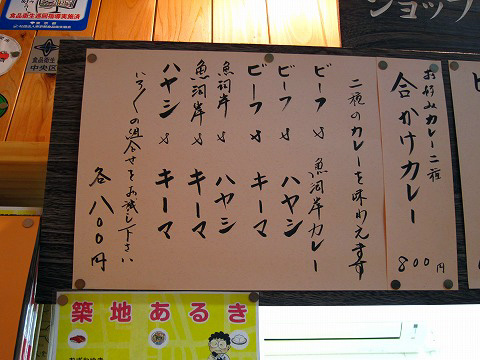 ショップ
お好みカレー二種
合かけカレー
800円
二種のカレーを味わえます
ビーフ × 魚河岸カレー
ビーフ × ハヤシ
ビーフ × キーマ
魚河岸 × ハヤシ
魚河岸 × キーマ
ハヤシ × キーマ
いろいろの組合せをお試し下さい
各八〇〇円
食品衛生巡回指導実施済
食品衛生
中央区
築地あるき